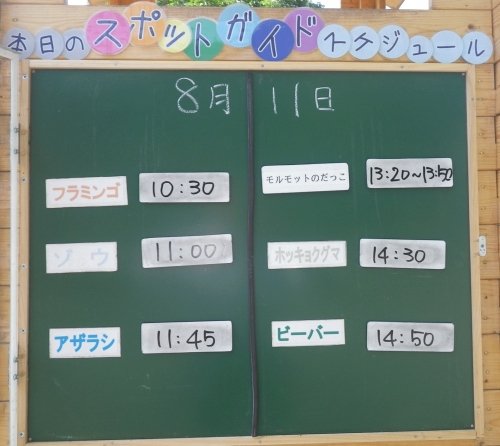 本日のスポットガイドスケジュール
8月 11日
フラミンゴ 10:30
ゾウ 11:00
アザラシ 11:45
モルモットのだっこ 13:20~13:50
ホッキョクグマ 14:30
ビーバー 14:50